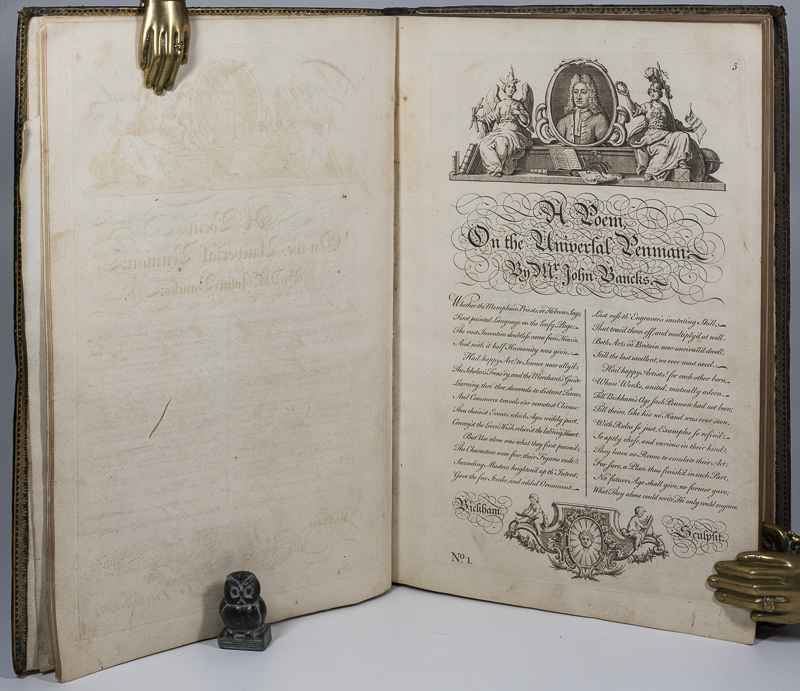 5
A Poem,
On the Universal Penman:
By Mr. John Bancks.
Whether the Memphian Priests, or Hebrew Sage,
First painted Language on the leafy Page;
The vast Invention doubtless came from Heav'n,
And with it half Humanity was giv'n.
Hail happy Art! to Science near ally'd;
The Scholar's Treas'ry, and the Merchant's Guide:
Learning, thro' thee, descends to distant Times,
And Commerce travels o'er remotest Climes:
Thou chain'st Events which Ages widely part,
Convey'st the Lover's Wish, reliev'st the lab'ring Heart.
But Use alone was what they first pursu'd;
The Characters were few, their Figures rude:
Succeeding Masters heighten'd up th' Intent;
Gave the free Stroke, and added Ornament.
Last rose th' Engraver's imitating Skill,
That trac'd them off, and multiply'd at will.
Both Arts in Britain now unrivall'd dwell:
Still the last excellent, we ever most excel.
Hail happy Artists! for each other born,
Whose Works, united, mutually adorn.
Till Bickham's Age such Penmen had not been;
Till theirs, like his no Hand was ever seen.
With Rules so just, Examples so refin'd;
So aptly chose, and various in their kind;
They leave no Room to emulate their Art:
For sure, a Plan thus finish'd in each Part,
No future Age shall give, no former gave,
What They alone could write, He only could engrave.
Bickham
Sculpsit.
No. 1.